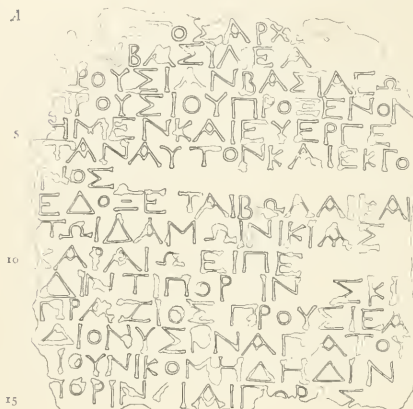 A
ΟΣΑΡΧ
ΒΑΣΙΛΕΑ
ΡΟΥΣΙΑΝΒΑΣΙΛΕΩ
ΠΡΟΥΣΙΟΥΠΡΟΞΕΝΟΝ
5 ΗΜΕΝΚΑΙΕΥΕΡΓΕ
ΤΑΝΑΥΤΟΝΚΑΙΕΚΓΟ
ΝΟΣ
ΕΔΟΞΕ ΤΑΙΒΩΛΑΙΚΑΙ
ΤΩΙΔΑΜΩΙΝΙΚΙΑΣ
10 ΑΡΑΙΩ ΕΙΠΕ
ΔΙΝΤΙΠΟΡ ΙΝ ΣΚΙ
ΠΡΑΞΙΟΣ ΠΡΟΥΣΙΕΑ
ΔΙΟΝΥΣ ΝΑΓΑΤΟΥ
ΤΟΥΝΙΚΟΜΗΔΗΔΙΝ
15 ΤΟΡΙΝ